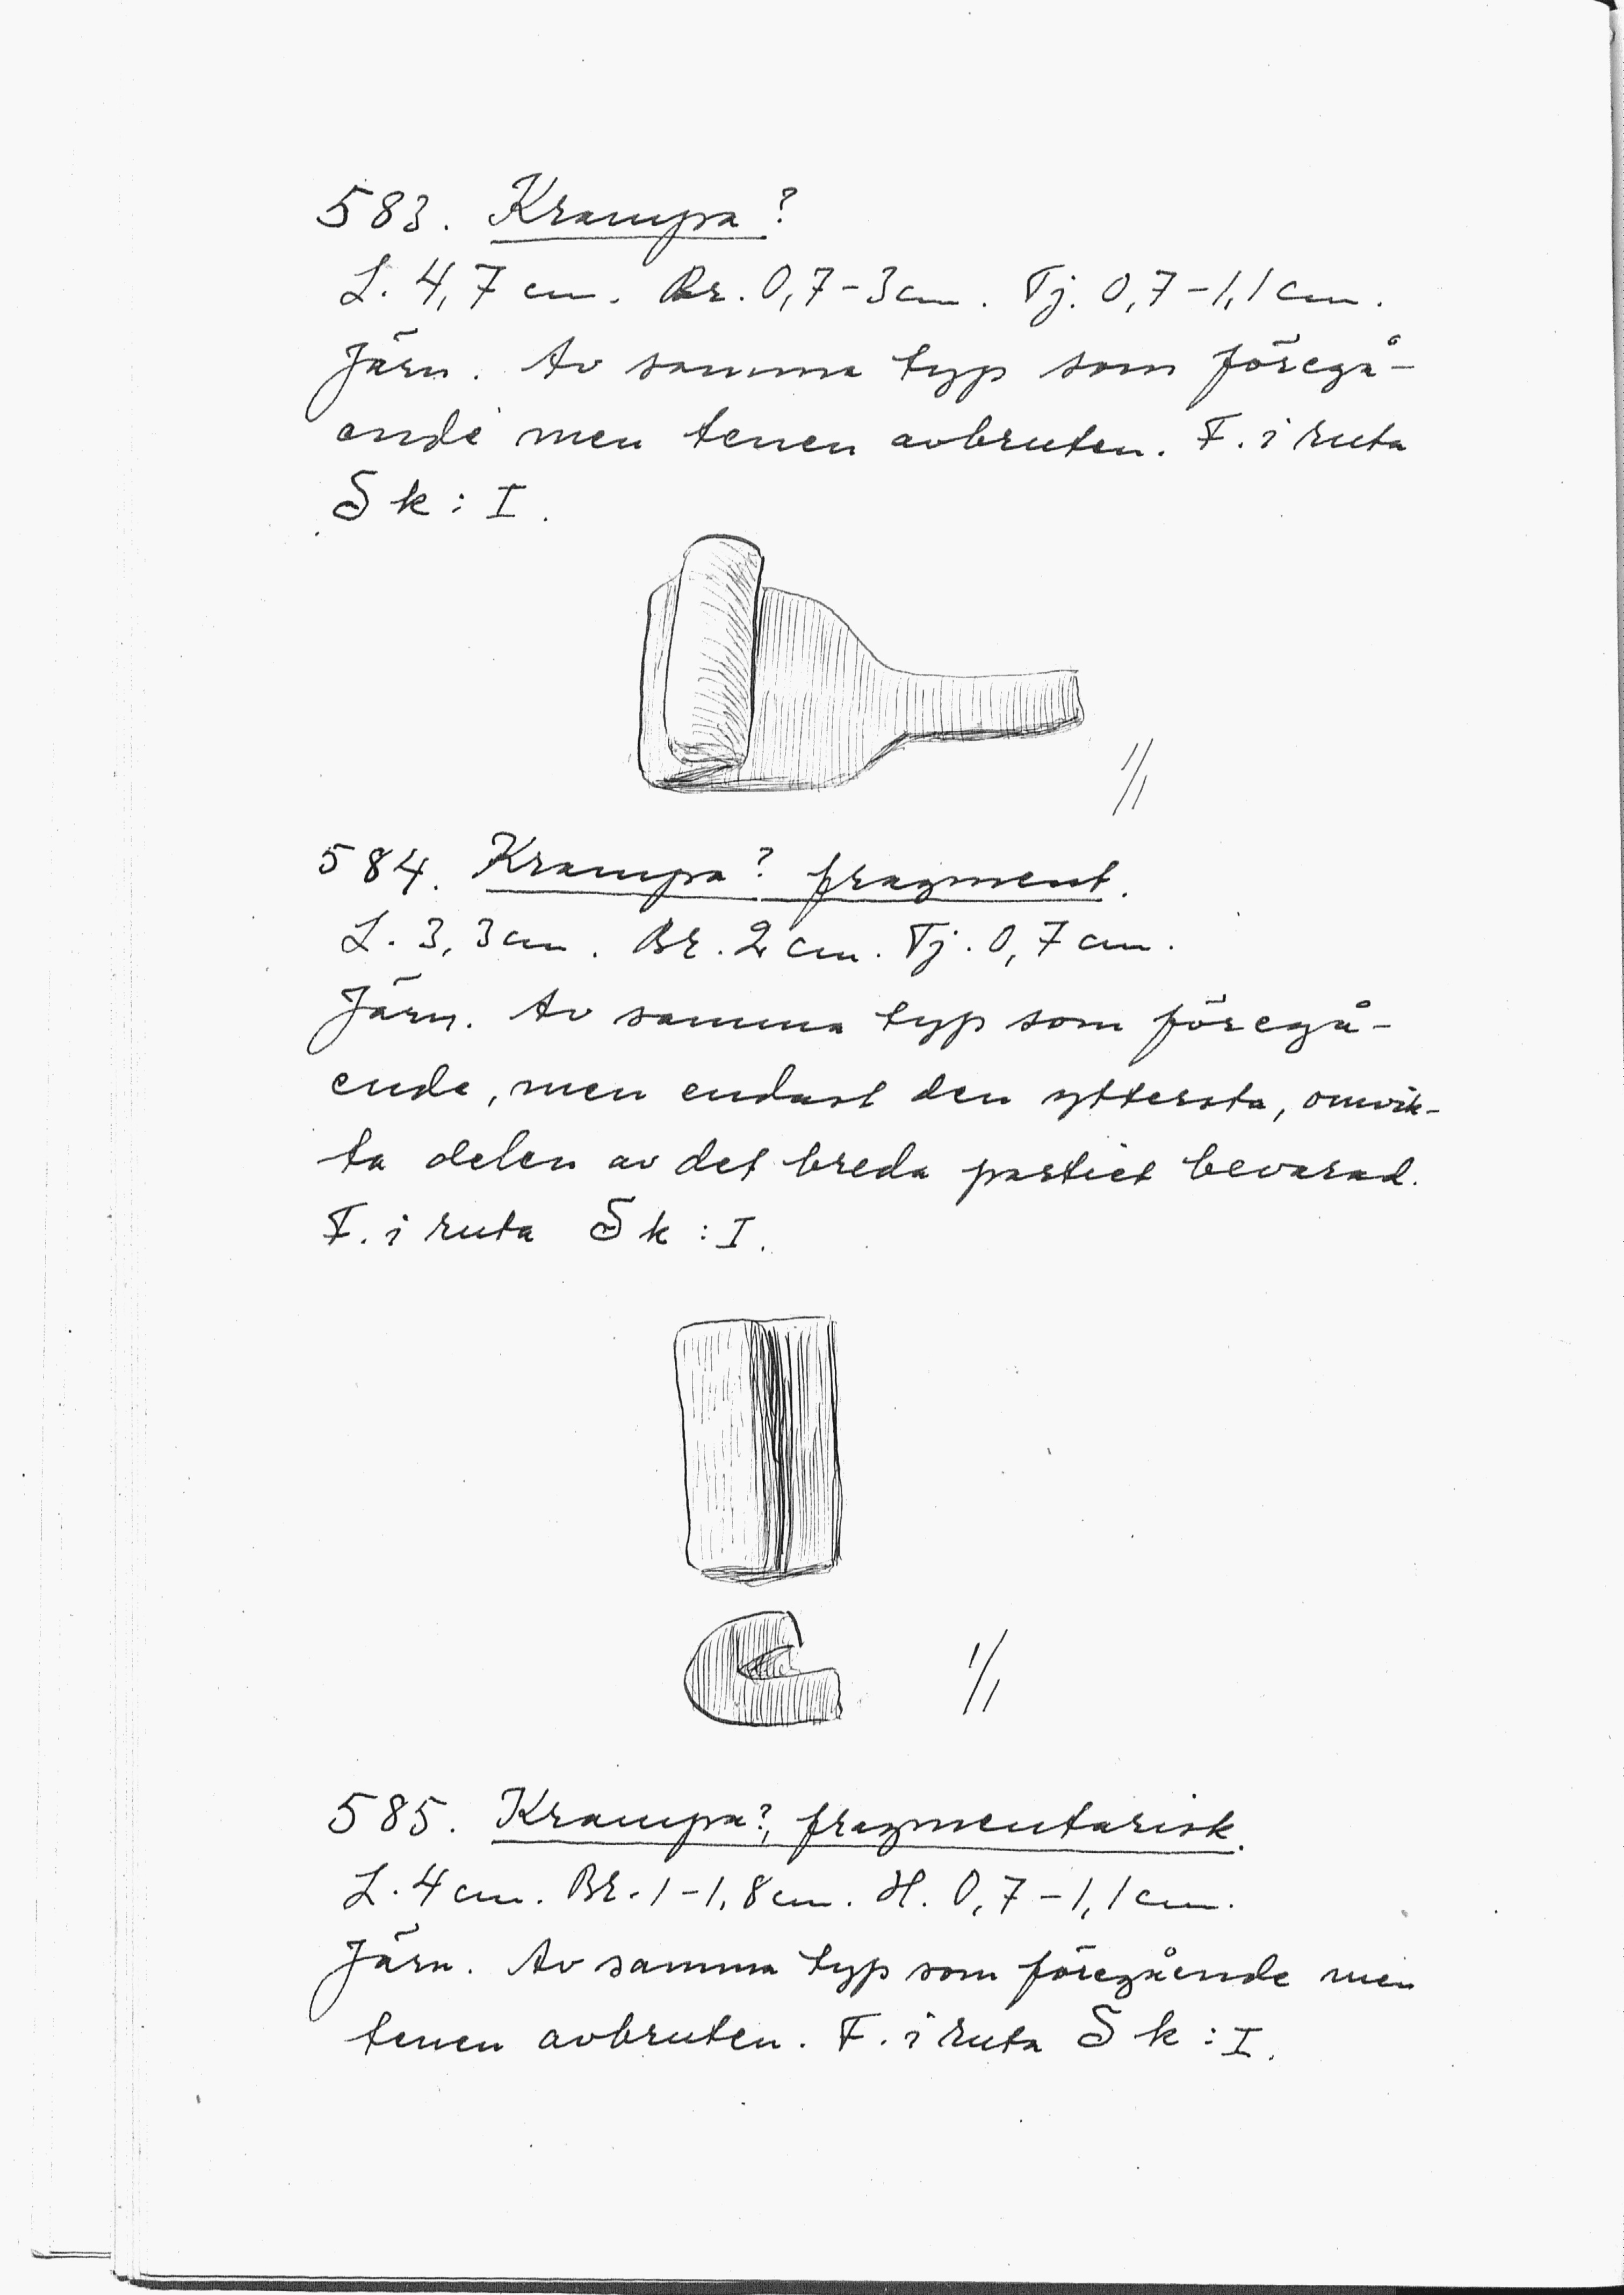 583. Krampa?
L. 4,7 cm. Br. 0,7-3 cm. Tj. 0,7-1,1 cm.
Järn. Av samma typ som föregå-
ende men tenen avbruten. F. i ruta
S k : I.
1/1
584. Krampa? fragment.
L. 3,3 cm. Br. 2 cm. Tj. 0,7 cm.
Järn. Av samma typ som föregå-
ende, men endast den yttersta, omvik-
ta delen av det breda partiet bevarad.
F. i ruta S k : I.
1/1
585. Krampa?, fragmentarisk.
L. 4 cm. Br. 1-1,8 cm. H. 0,7-1,1 cm.
Järn. Av samma typ som föregående men
tenen avbruten. F. i ruta S k : I.